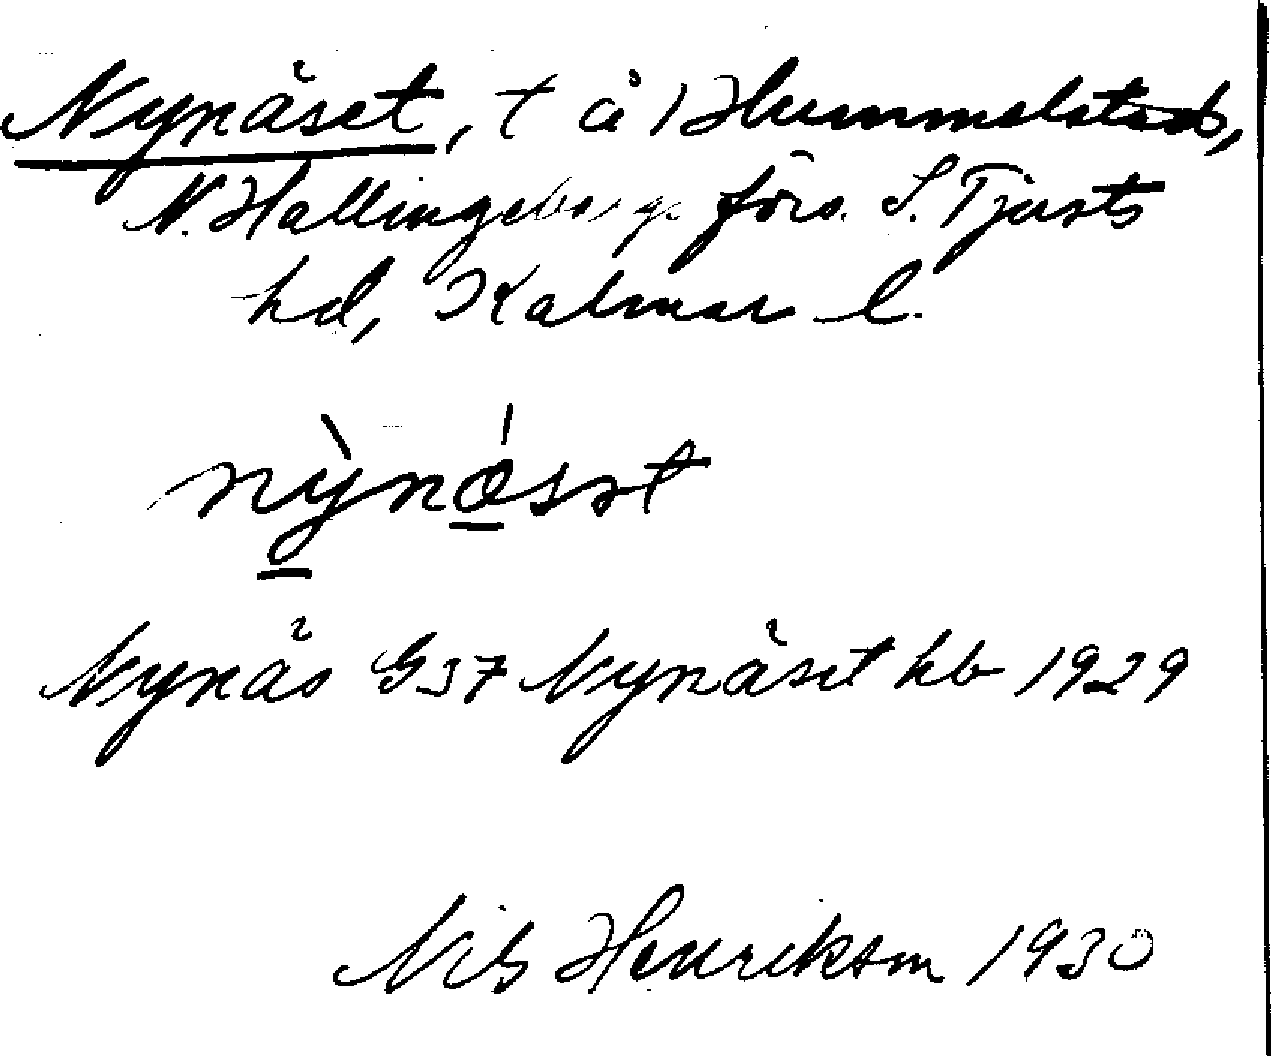 Nynäset, t å 1 Hummelstad,
N. Hallingebergs förs. S. Tjusts
hd, Kalmar l.
nỳnǽsət
Nynäs G 37 Nynäset hb 1929
Nils Henrikson 1930